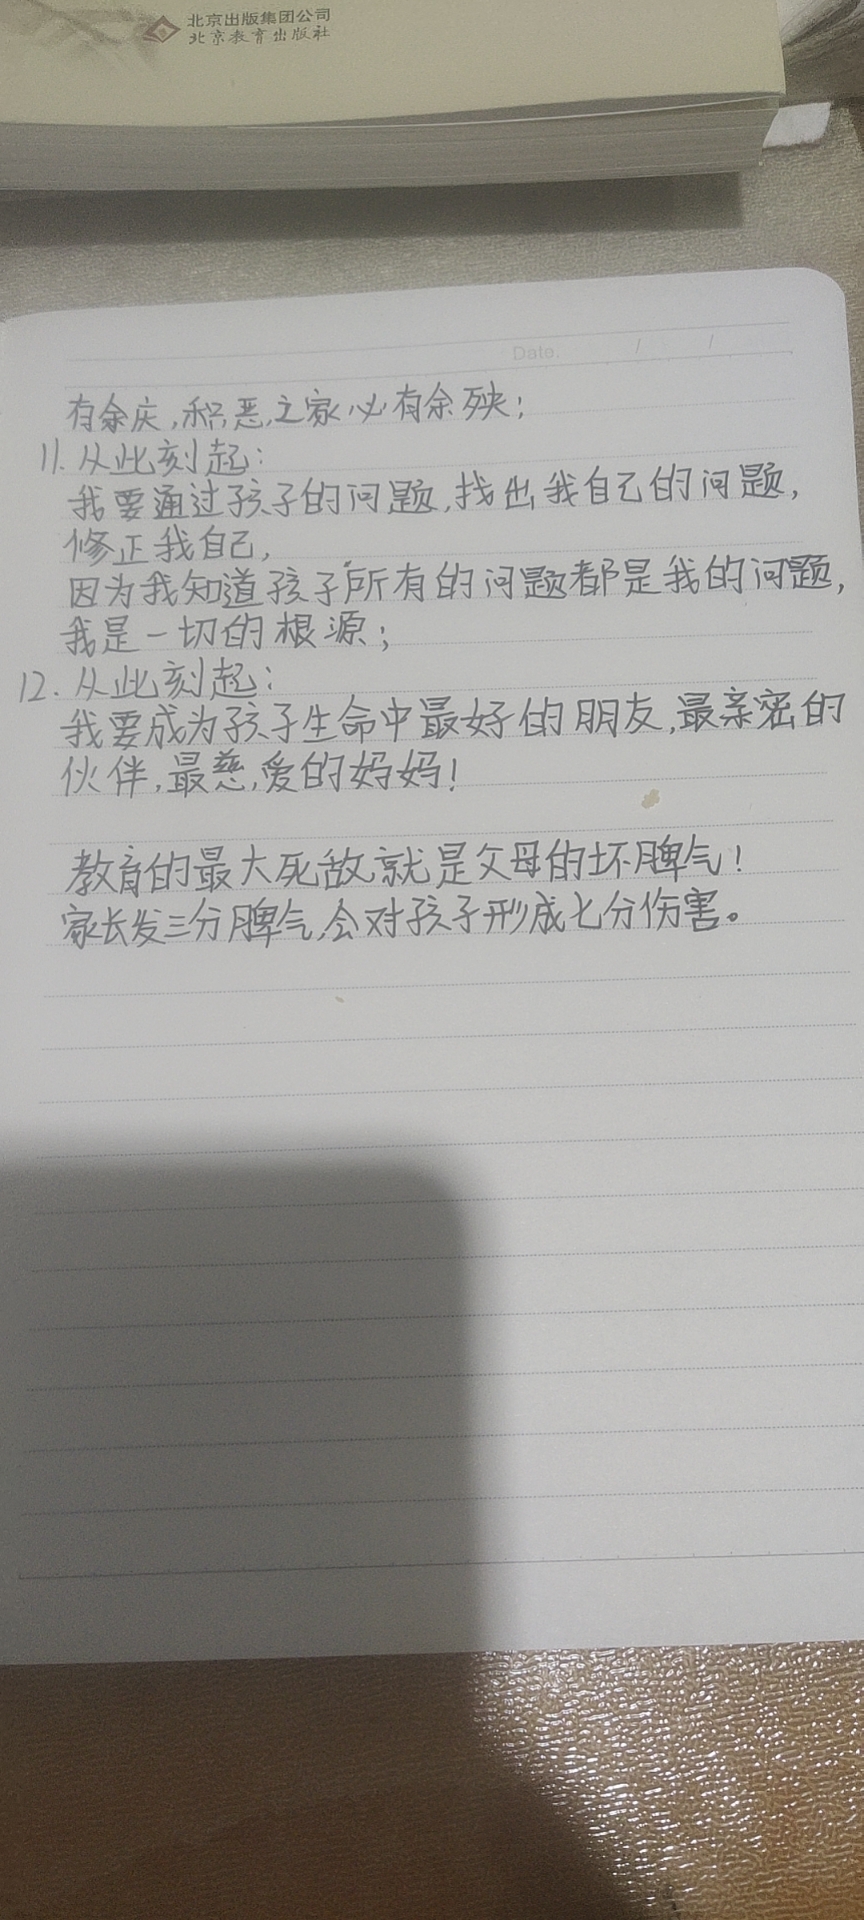 北京出版集团公司
北京教育出版社
Date. / /
有余庆,积恶之家必有余殃;
11.从此刻起:
我要通过孩子的问题,找出我自己的问题,
修正我自己,
因为我知道孩子所有的问题都是我的问题,
我是一切的根源;
12.从此刻起:
我要成为孩子生命中最好的朋友,最亲密的
伙伴,最慈爱的妈妈!
教育的最大死敌就是父母的坏脾气!
家长发三分脾气,会对孩子形成七分伤害。